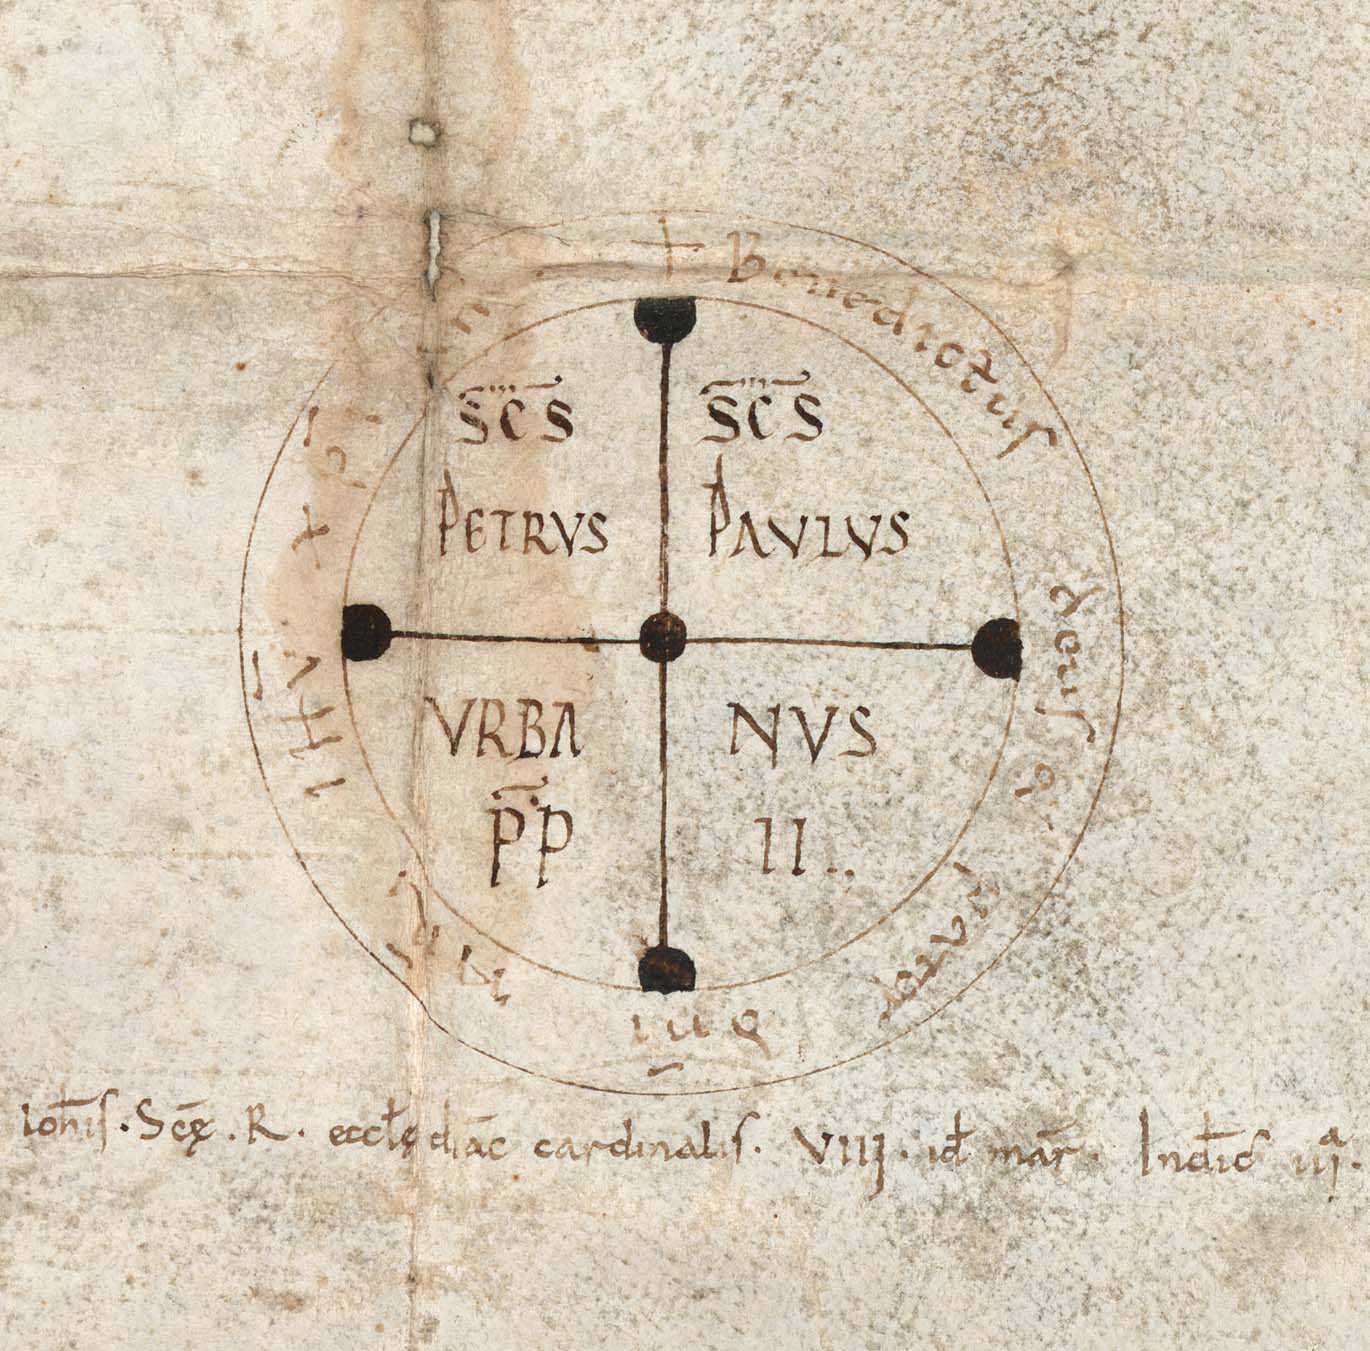 + Benedictus Deus et pater dni nri ihu xpi
SCS SCS
PETRVS PAVLVS
VRBA NVS
PP II..
iohis. Scę. R. ecclę diac cardinalis. VIIJ. id mar. Indic iij.a